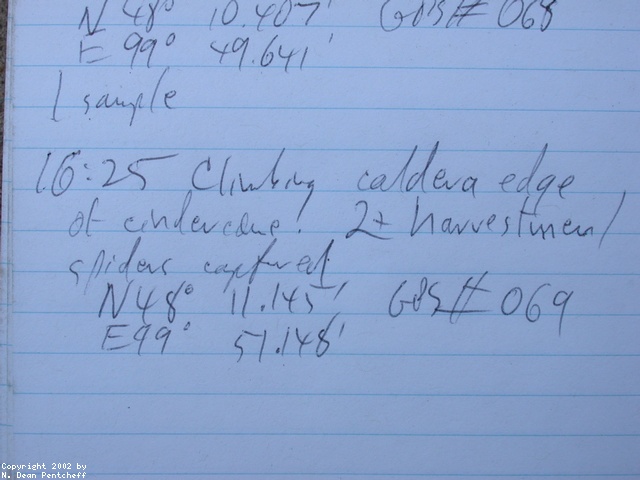 N 48° 10.407' GPS# 068
E 99° 49.641'
1 sample
16:25 Climbing caldera edge
of cindercone! 2+ harvestmen/
spiders captured.
N48° 11.145' GPS# 069
E99° 51.148'
Copyright 2002 by
N. Dean Pentcheff